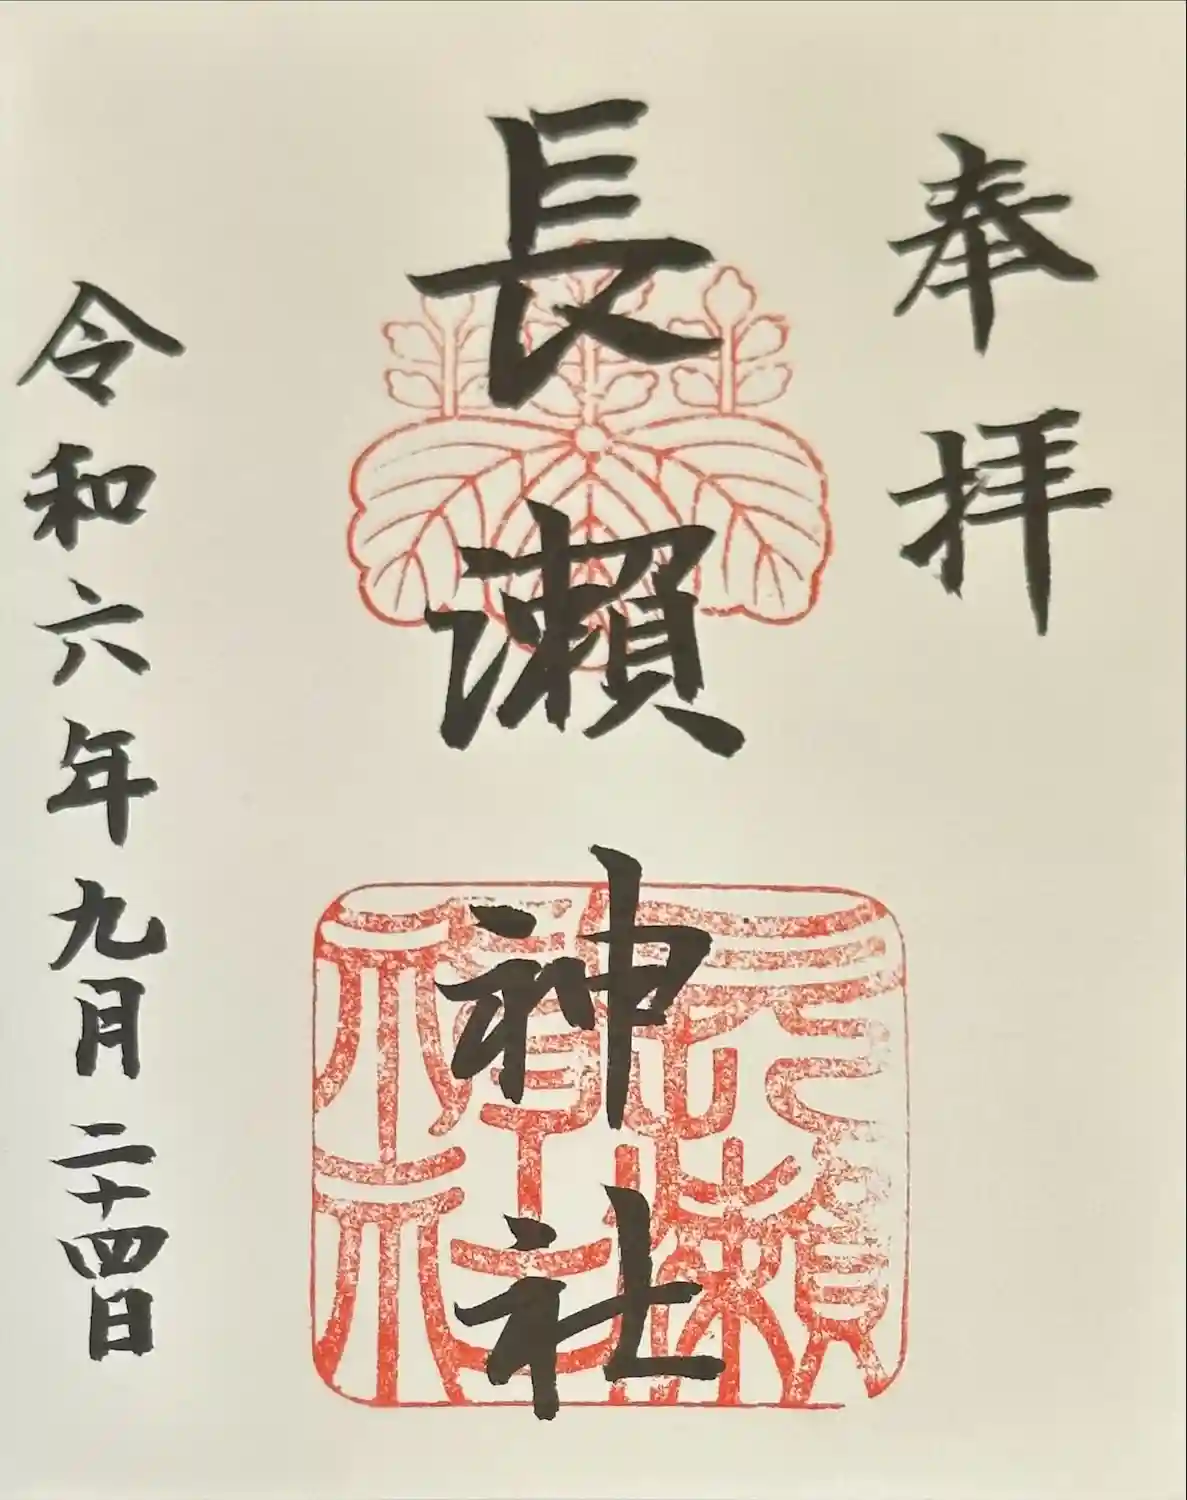 奉拝
長瀬神社
長瀬神社
令和六年九月二十四日